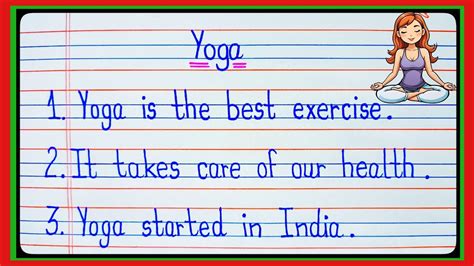 Yoga
1. Yoga is the best exercise.
2. It takes care of our health.
3. Yoga started in India.